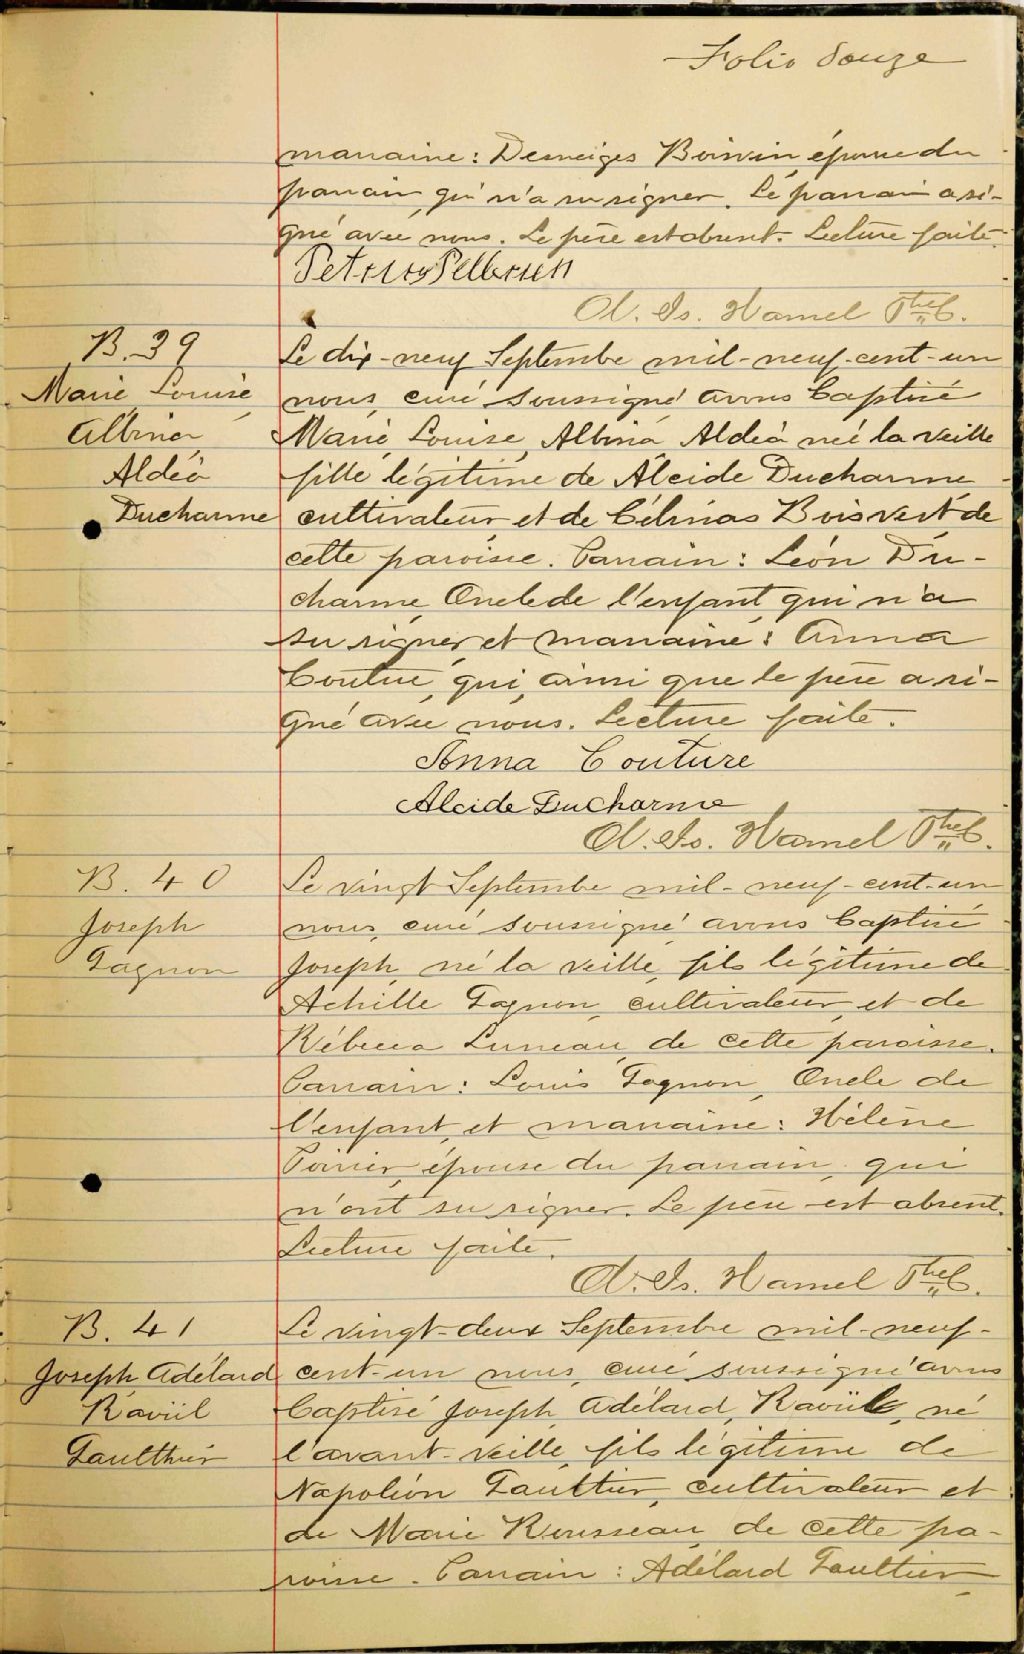 Folio douze
marraine: Desneiges Boisvin épouse du
parrain qui n'a su signer. Le parrain a si-
gné avec nous. Le père est absent. Lecture faite.
O. Is. Hamel Ptre C.
B. 39
Marie Louise
Albina
Aldéa
Ducharme
Le dix-neuf Septembre mil-neuf-cent-un
nous, curé soussigné avons baptisé
Marie, Louise, Albina Aldéa née la veille
fille légitime de Alcide Ducharme
cultivateur et de Célinas Boisvert de
cette paroisse. Parrain: Léon Du-
charme, Oncle de l'enfant qui n'a
su signer, et marraine: Anna
Couture, qui, ainsi que le père a si-
gné avec nous. Lecture faite.
Anna Couture
Alcide DuCharme
O. Is. Hamel Ptre C.
B. 40
Joseph
Gagnon
Le vingt Septembre mil-neuf-cent-un
nous, curé soussigné avons baptisé
Joseph, né la veille, fils légitime de
Achille Gagnon, cultivateur, et de
Rébecca Luneau, de cette paroisse.
Parrain: Louis Gagnon, Oncle de
l'enfant, et marraine: Hélène
Poirier, épouse du parrain, qui
n'ont su signer. Le père est absent.
Lecture faite.
O. Is. Hamel Ptre C.
B. 41
Joseph Adélard
Raviül
Gaulthier
Le vingt-deux Septembre mil-neuf-
cent-un nous, curé soussigné avons
baptisé Joseph, Adélard, Raoül, né
l'avant-veille, fils légitime de
Napoléon Gaultier, cultivateur et
de Marie Rousseau, de cette pa-
roisse. Parrain: Adélard Gaultier,